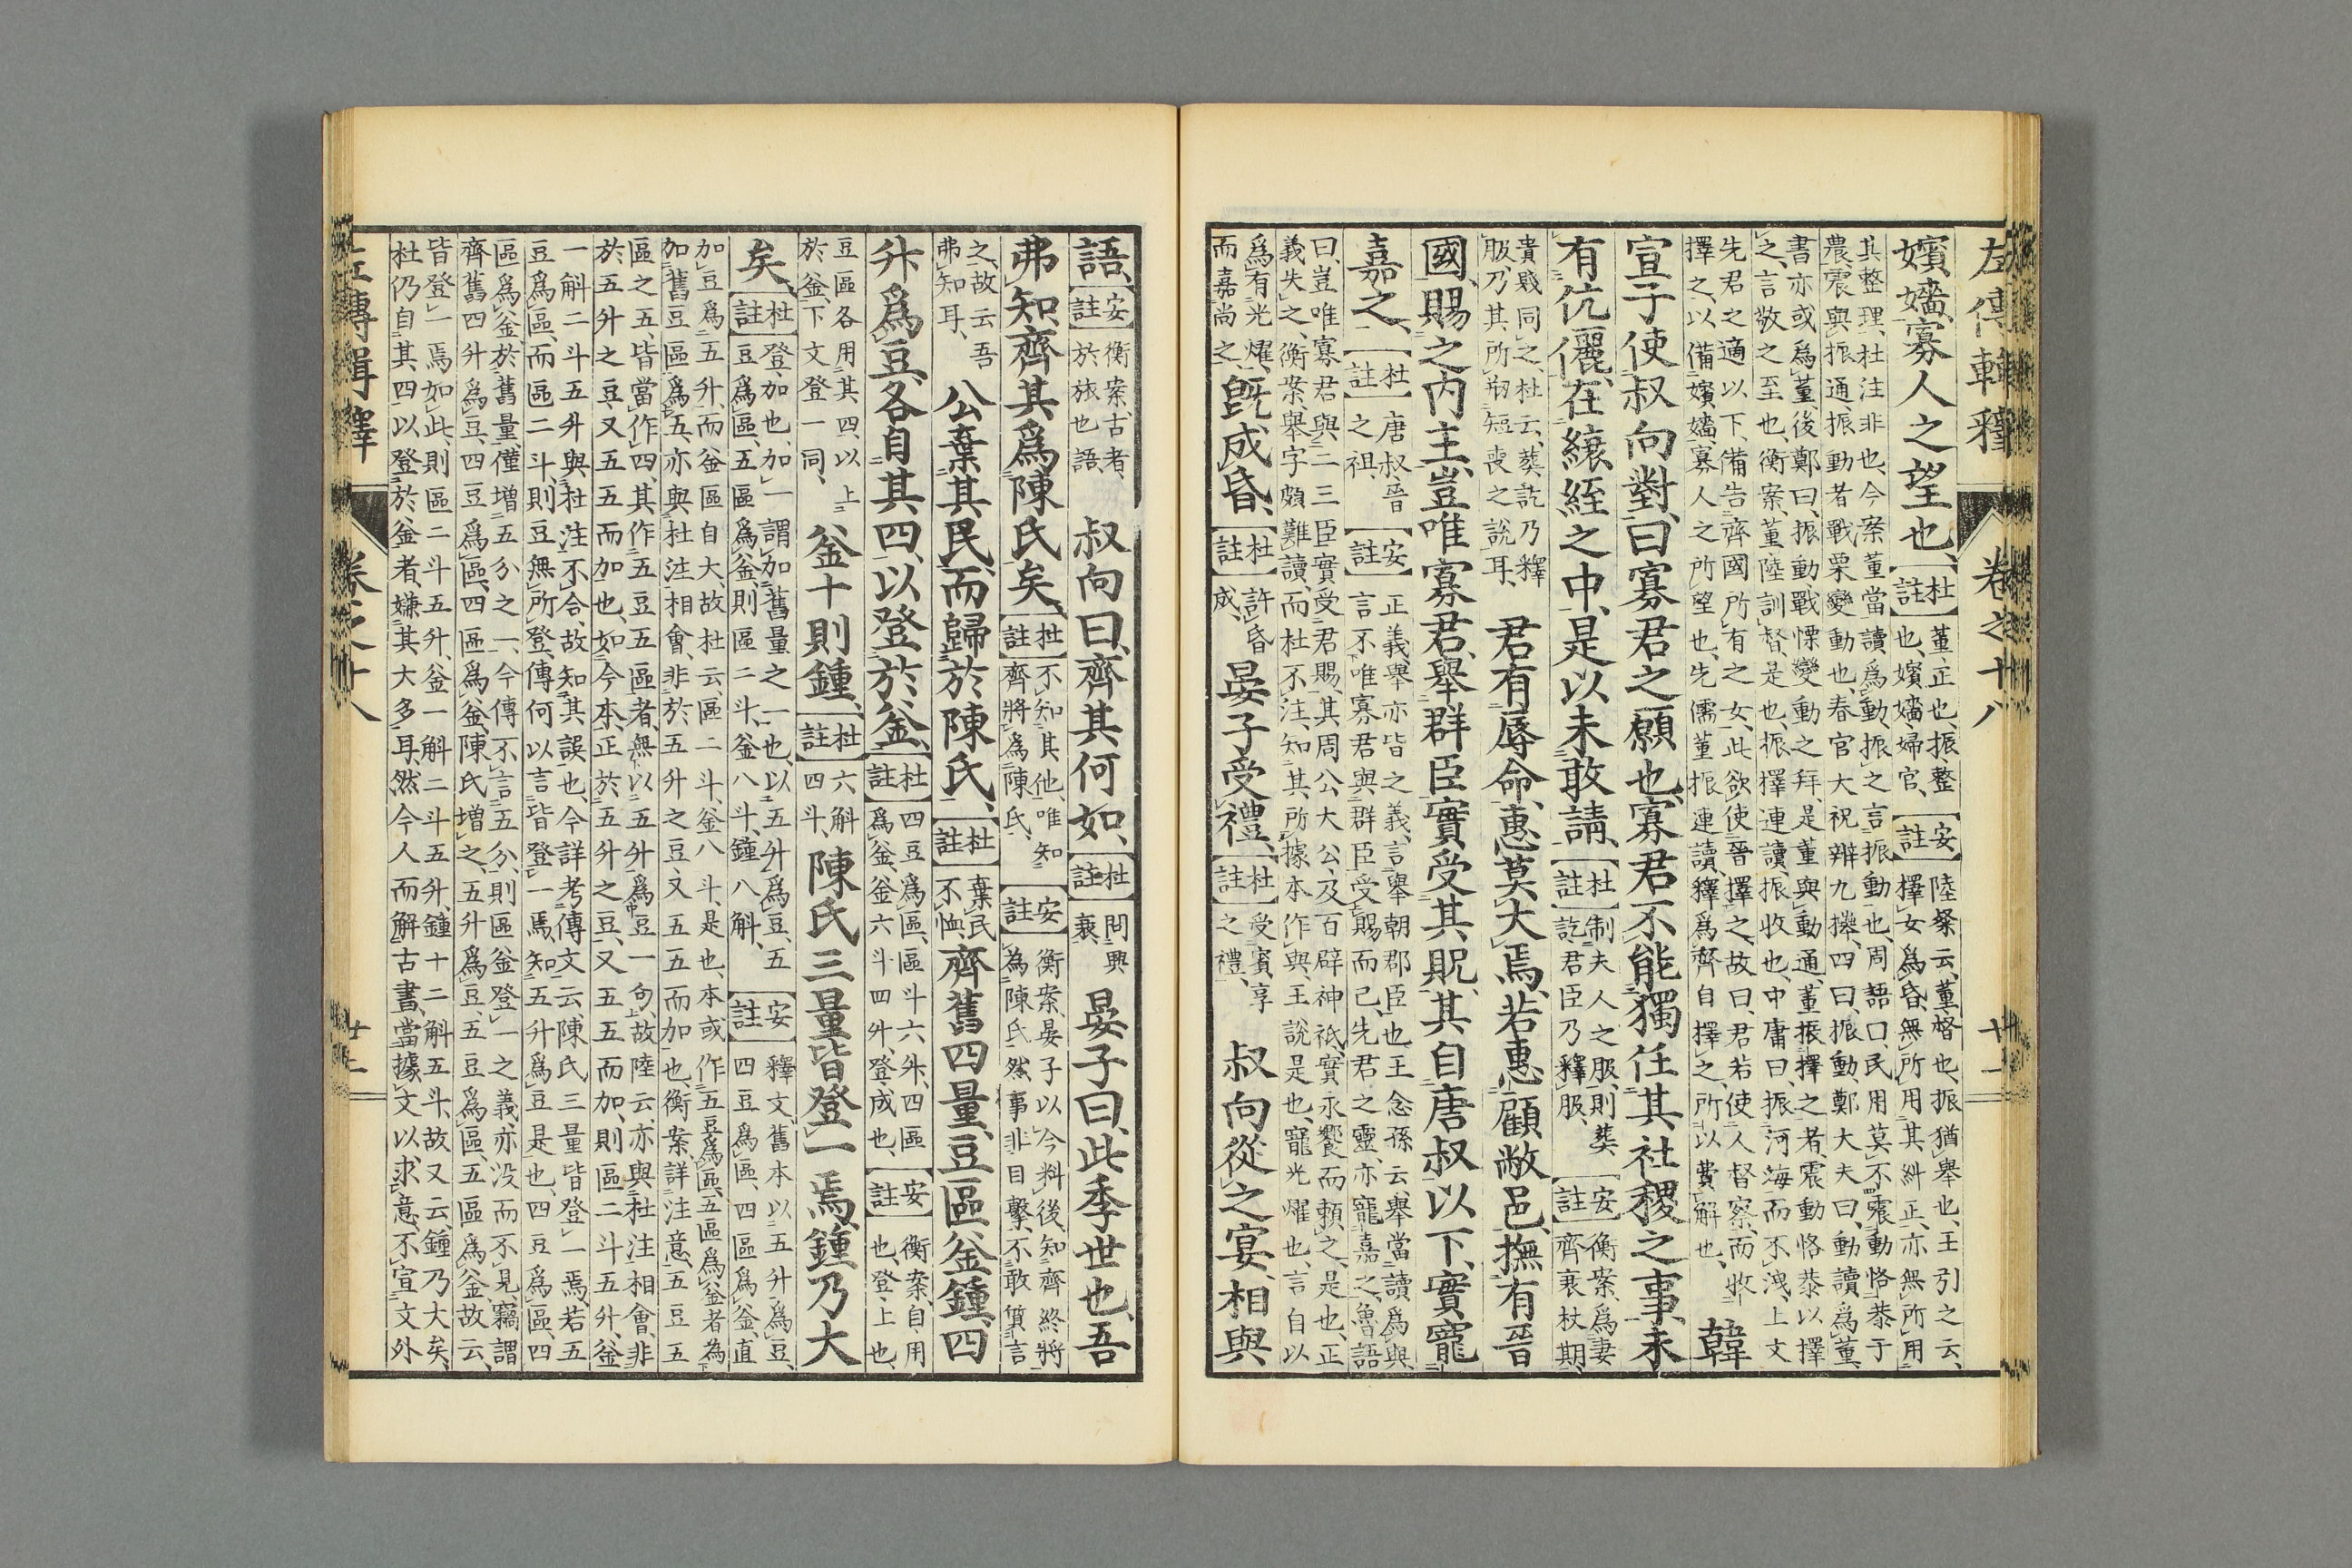 左傳輯釋　卷之十八
嬪嬙、寡人之望也、【杜註】董正也、振整也、嬪嬙、婦官、【安註】陸粲云、董督也、振猶舉也、王引之云、擇女爲昏、無所用其糾正、亦無所用
其整理、杜注非也、今案董當讀爲動、振之言振動也、周語曰、民用莫不震動恪恭于
農、震與振通、振動者戰栗變動也、春官大祝辨九㩲、四曰、振動、鄭大夫曰、動讀爲董、
書亦或爲董、後鄭曰、振動戰慄變動之拜、是董與動通、董振擇之者、震動恪恭以擇
之、言敬之至也、衡案、董陸訓督、是也、振擇連讀、振收也、中庸曰、振河海而不洩、上文
先君之適以下、備告齊國所有之女、此欲使晉擇之、故曰、君若使人督察、而收
擇之、以備嬪嬙、寡人之所望也、先儒董振連讀、釋爲齊自擇之、所以費解也、韓
宣子使叔向對、曰寡君之願也、寡君不能獨任其社稷之事、未
有伉儷、在縗絰之中、是以未敢請、【杜註】制夫人之服、則葬訖、君臣乃釋服、【安註】衡案、爲妻齊衰杖期、
貴賤同之、杜云、葬訖乃釋服、乃其所刱短喪之說耳、君有辱命、惠莫大焉、若惠顧敝邑、撫有晉
國、賜之內主、豈唯寡君、舉群臣實受其貺、其自唐叔以下、實寵
嘉之、【杜註】唐叔晉之祖、【安註】正義、舉亦皆之義、言舉朝郡臣也、王念孫云、舉當讀爲與、言不唯寡君與群臣受賜而已、先君之靈、亦寵嘉之、魯語
曰、豈唯寡君與二三臣實受君賜、其周公大公、及百辟神祇、實永饗而賴之、是也、正
義失之、衡案、舉字頗難讀、而杜不注、知其所據本作與、王說是也、寵光燿也、言自以
爲有光燿、而嘉尚之、既成昏、【杜註】許昏成、晏子受禮、【杜註】受賓享之禮、叔向從之宴、相與
語、【安註】衡案、古者、於旅也語、叔向曰、齊其何如、【杜註】問興衰、晏子曰、此季世也、吾
弗知、齊其爲陳氏矣、【杜註】不知其他、唯知齊將爲陳氏、【安註】衡案、晏子以今料後、知齊終將爲陳氏、然事非目擊、不敢質言
之、故云吾弗知耳、公棄其民、而歸於陳氏、【杜註】棄民不恤、齊舊四量、豆區釜鍾、四
升爲豆、各自其四、以登於釜、【杜註】四豆爲區、區斗六升、四區爲釜、釜六斗四升、登、成也、【安註】衡案、自用也、登、上也、
豆區各用其四、以上於釜、下文登一同、釜十則鍾、【杜註】六斛四斗、陳氏三量皆登一焉、鍾乃大
矣、【杜註】登、加也、加一、謂加舊量之一也、以五升爲豆、五豆爲區、五區爲釜、則區二斗、釜八斗、鍾八斛、【安註】釋文、舊本以五升爲豆、四豆爲區、四區爲釜、直
加豆爲五升、而釜區自大、故杜云、區二斗、釜八斗、是也、本或作五豆爲區、五區爲釜者、為
加舊豆區爲五、亦與杜注相會、非於五升之豆、又五五而加也、衡案、詳注意、五豆五
區之五、皆當作四、其作五豆五區者、無以五升爲豆一句、故陸云、亦與杜注相會、非
於五升之豆、又五五而加也、如今本、正於五升之豆、又五五而加、則區二斗五升、釜
一斛二斗五升、與杜注不合、故知其誤也、今詳考傳文、云陳氏三量皆登一焉、若五
豆爲區、而區二斗、則豆無所登、傳何以言皆登一焉、知五升爲豆是也、四豆爲區、四
區爲釜、於舊量、僅增五分之一、今傳不言五分、則區釜登一之義、亦没而不見、竊謂
齊舊四升爲豆、四豆爲區、四區爲釜、陳氏增之、五升爲豆、五豆爲區、五區爲釜、故云、
皆登一焉、如此、則區二斗五升、釜一斛二斗五升、鍾十二斛五斗、故又云、鍾乃大矣、
杜仍自其四以登於釜者、嫌其大多耳、然今人而解古書、當據文以求意、不宣文外
左傳輯釋　卷之十八